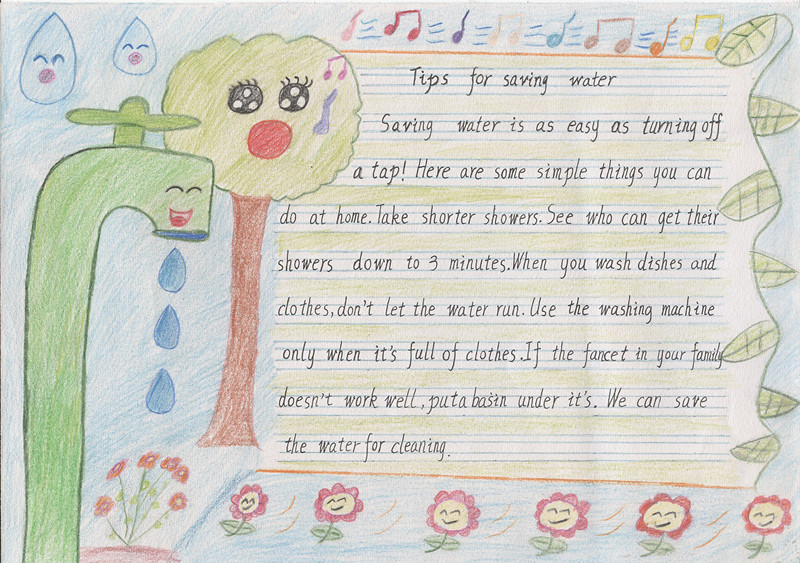 Tips for saving water
Saving water is as easy as turning off
a tap! Here are some simple things you can
do at home. Take shorter showers. See who can get their
showers down to 3 minutes. When you wash dishes and
clothes, don't let the water run. Use the washing machine
only when it's full of clothes. If the fancet in your family
doesn't work well, put a basin under it's. We can save
the water for cleaning.